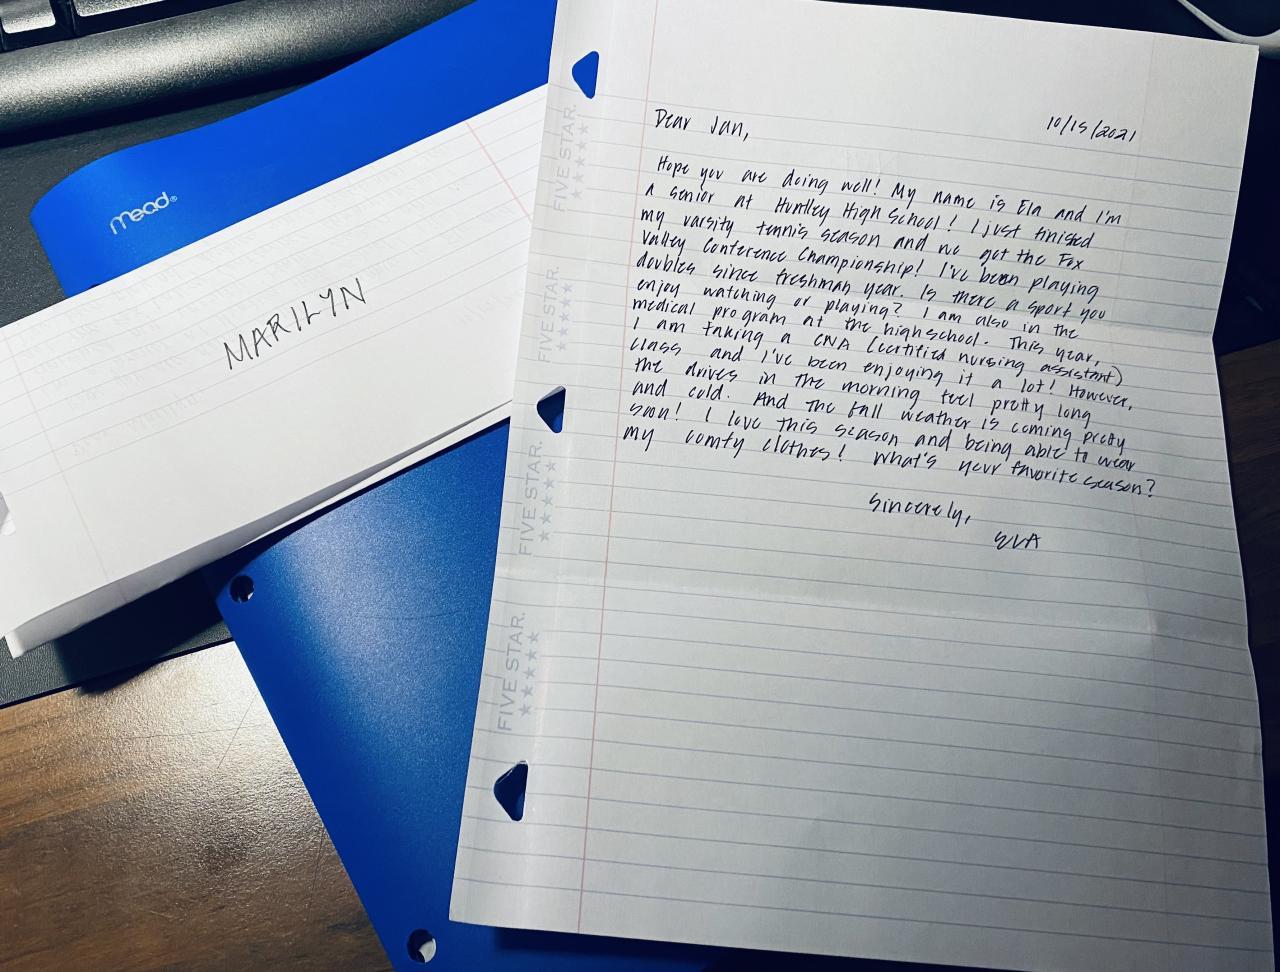 Dear Jan,
10/15/2021
Hope you are doing well! My name is Ela and I'm
a senior at Huntley High School! I just finished
my varsity tennis season and we got the Fox
Valley Conference Championship! I've been playing
doubles since freshman year. Is there a sport you
enjoy watching or playing? I am also in the
medical program at the highschool. This year,
I am taking a CNA (certified nursing assistant)
class and I've been enjoying it a lot! However,
the drives in the morning feel pretty long
and cold. And the fall weather is coming pretty
soon! I love this season and being able to wear
my comfy clothes! What's your favorite season?
Sincerely,
ELA
MARILYN
Mead
FIVE STAR.
FIVE STAR.
FIVE STAR.
FIVE STAR.